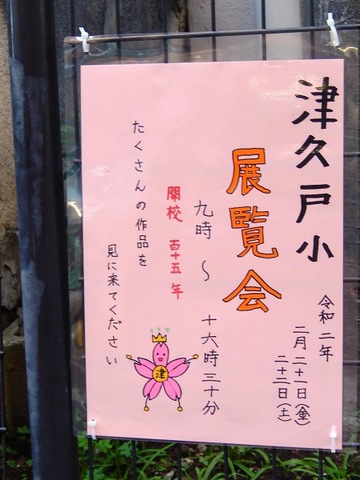 津久戸小
展覧会
令和二年
二月二十一日(金)
二十二日(土)
九時～十六時三十分
開校百十五年
たくさんの作品を
見に来てください
津